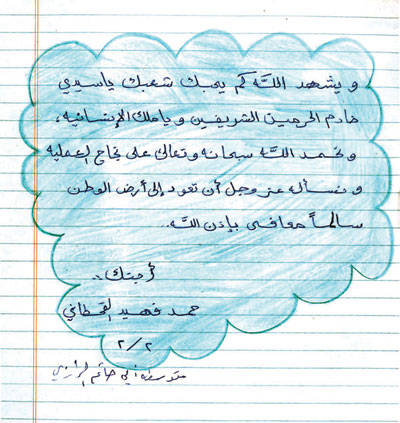 ويشهد اللَّه كم يحبك شعبك ياسيدي
خادم الحرمين الشريفين وياملك الإنسانيه،
ونحمد اللَّه سبحانه وتعالى على نجاح العمليه
ونسأله عز وجل أن تعود إلى أرض الوطن
سالماً معافى بإذن اللَّه..
أحبتك،،
حمد فهيد القحطاني
٢/٢
متوسطة أبي حاتم الرازي